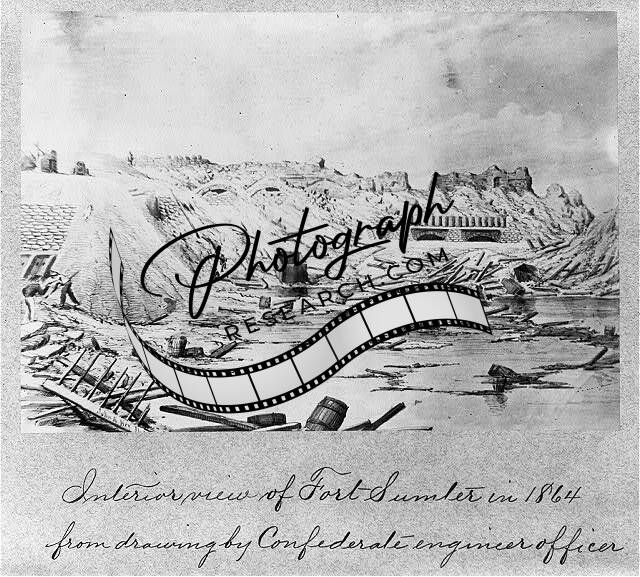 Photograph
RESEARCH.COM
Interior view of Fort Sumter in 1864
from drawing by Confederate engineer officer